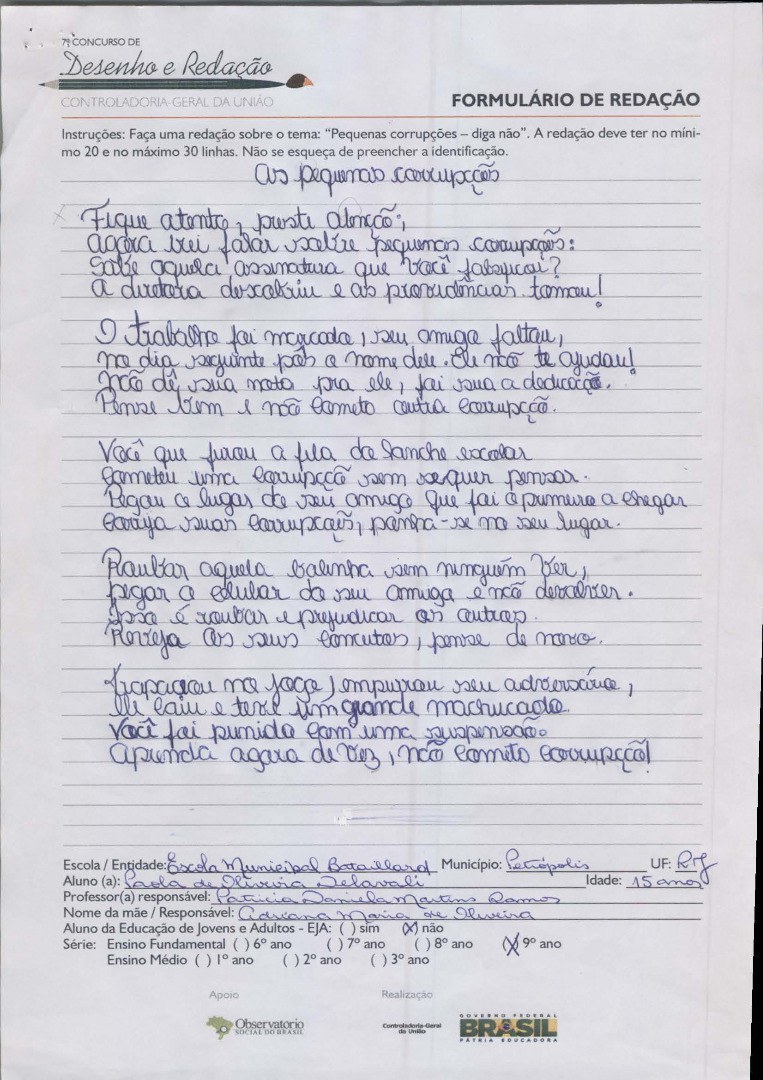 7º CONCURSO DE
Desenho e Redação
CONTROLADORIA-GERAL DA UNIÃO
FORMULÁRIO DE REDAÇÃO
Instruções: Faça uma redação sobre o tema: “Pequenas corrupções – diga não”. A redação deve ter no míni-
mo 20 e no máximo 30 linhas. Não se esqueça de preencher a identificação.
As pequenas corrupções
Fique atento, preste atenção;
Agora irei falar sobre pequenas corrupções:
Sabe aquela assinatura que você falsificou?
A diretora descobriu e as providências tomou!
O trabalho foi marcado, seu amigo faltou,
no dia seguinte pôs o nome dele. Ele não te ajudou!
Não dê sua nota pra ele, foi sua a dedicação.
Pense bem e não cometa outra corrupção.
Você que furou a fila do lanche escolar
Cometeu uma corrupção sem sequer pensar.
Pegou o lugar do seu amigo que foi o primeiro a chegar
Corrija suas corrupções, ponha-se no seu lugar.
Roubar aquela balinha sem ninguém ver,
pegar o celular do seu amigo e não devolver.
Isso é roubar e prejudicar os outros.
Reveja os seus conceitos, pense de novo.
Trapaceou no jogo, empurrou seu adversário,
Ele caiu e teve um grande machucado.
Você foi punido com uma suspensão.
Aprenda agora de vez, não cometa corrupção!
Escola / Entidade: Escola Municipal Bataillard Município: Petrópolis UF: RJ
Aluno (a): Paola de Oliveira Delavali Idade: 15 anos
Professor(a) responsável: Patricia Daniela Martins Ramos
Nome da mãe / Responsável: Adriana Maria de Oliveira
Aluno da Educação de Jovens e Adultos - EJA: ( ) sim (X) não
Série: Ensino Fundamental ( ) 6º ano ( ) 7º ano ( ) 8º ano (X) 9º ano
Ensino Médio ( ) 1º ano ( ) 2º ano ( ) 3º ano
Apoio Realização
Observatório
SOCIAL DO BRASIL
Controladoria-Geral
da União
GOVERNO FEDERAL
BRASIL
PÁTRIA EDUCADORA